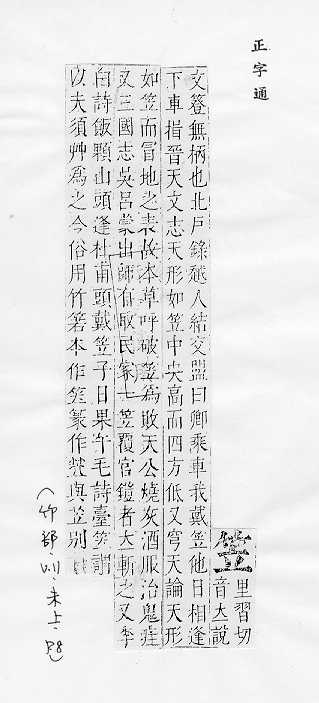 正字通
笠
里習切
音立說
文簦無柄也北戶錄越人結交盟曰卿乘車我戴笠他日相逢
下車揖晉天文志天形如笠中央高而四方低又穹天論天形
如笠而冒地之表故本草呼破笠為敗天公燒灰酒服治鬼疰
又三國志吳呂蒙出師有取民家一笠覆官鎧者立斬之又李
白詩飯顆山頭逢杜甫頭戴笠子日卓午毛詩臺笠謂
以夫須艸為之今俗用竹箬本作笠篆作與苙別
(竹部·未上·P8)